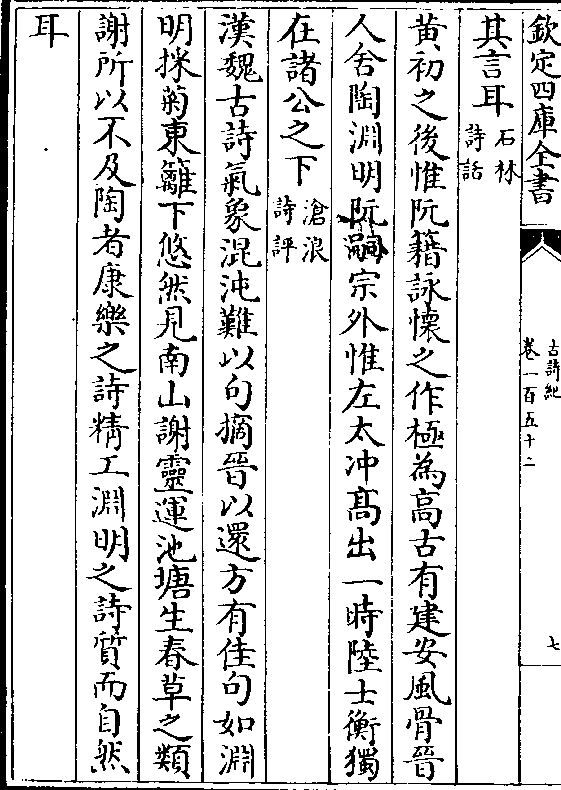 欽定四庫全書
古詩紀
卷一百五十二
七
其言耳石林詩話
黄初之後惟阮籍詠懷之作極為高古有建安風骨晉
人舍陶淵明阮嗣宗外惟左太冲髙出一時陸士衡獨
在諸公之下滄浪詩評
漢魏古詩氣象混沌難以句摘晉以還方有佳句如淵
明採菊東籬下悠然見南山謝靈運池塘生春草之類
謝所以不及陶者康樂之詩精工淵明之詩質而自然
耳